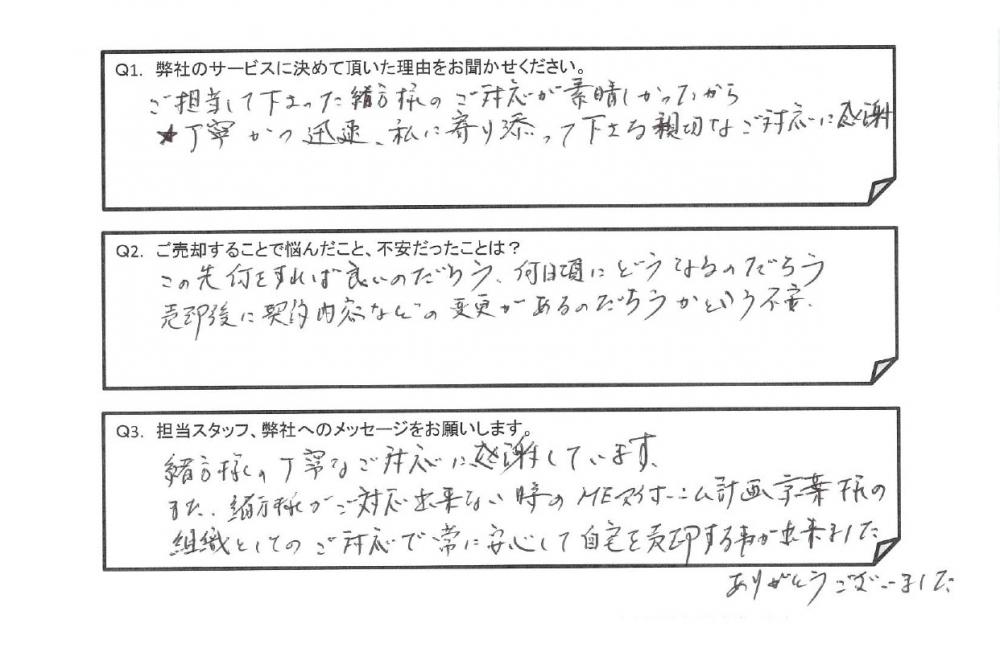 Q1. 弊社のサービスに決めて頂いた理由をお聞かせください。
ご担当して下さった緒方様のご対応が素晴しかったから
★丁寧かつ迅速、私に寄り添って下さる親切なご対応に感謝
Q2. ご売却することで悩んだこと、不安だったことは？
この先何をすれば良いのだろう、何日頃にどうなるのだろう
売却後に契約内容などの変更があるのだろうかという不安.
Q3. 担当スタッフ、弊社へのメッセージをお願いします。
緒方様の丁寧なご対応に感謝しています。
また、緒方様がご対応出来ない時の ホーム計画 様の
組織としてのご対応で常に安心して自宅を売却する事が出来ました
ありがとうございました